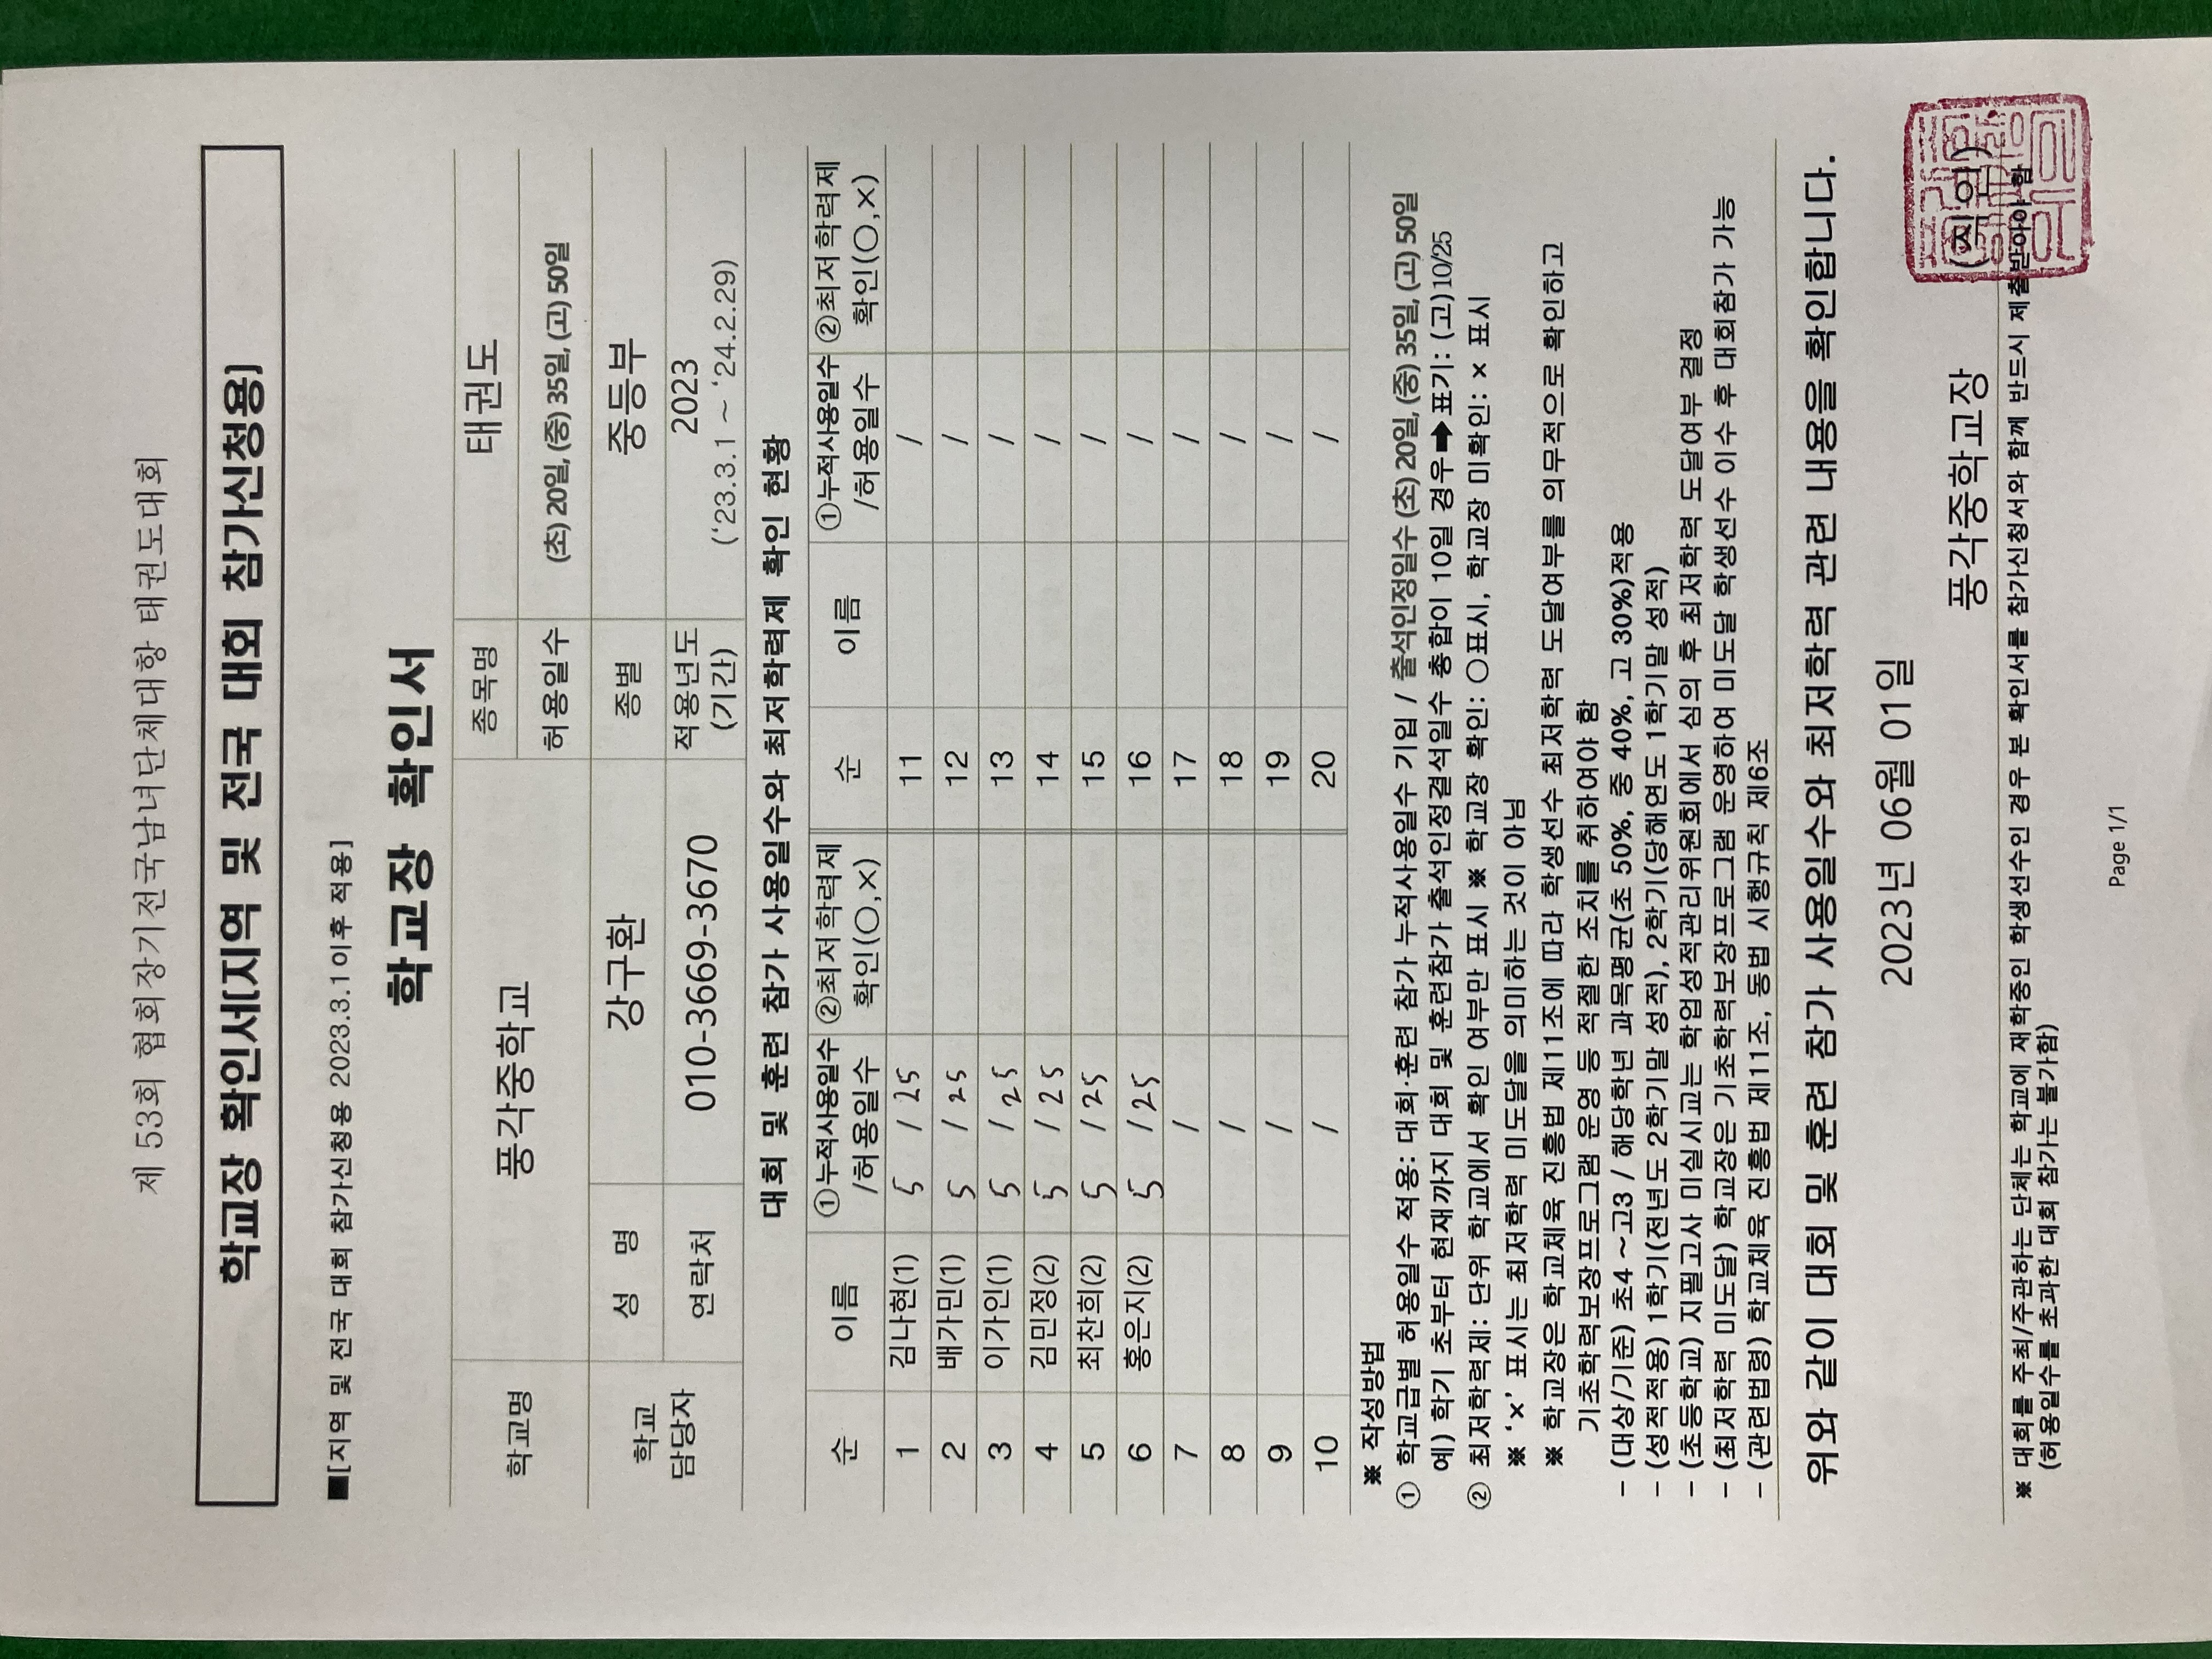 제 53회 협회장기전국남녀단체대항 태권도대회
학교장 확인서[지역 및 전국 대회 참가신청용]
■[지역 및 전국 대회 참가신청용 2023.3.1이후 적용]
학교장 확인서
학교명 풍각중학교 종목명 태권도
허용일수 (초) 20일, (중) 35일, (고) 50일
학교 담당자 성 명 강구환 종별 중등부
연락처 010-3669-3670 적용년도 (기간) 2023 ('23.3.1 ~ '24.2.29)
대회 및 훈련 참가 사용일수와 최저학력제 확인 현황
순 이름 ①누적사용일수 /허용일수 ②최저학력제 확인(○,×) 순 이름 ①누적사용일수 /허용일수 ②최저학력제 확인(○,×)
1 김나현(1) 5 / 25 11 /
2 배가민(1) 5 / 25 12 /
3 이가인(1) 5 / 25 13 /
4 김민정(2) 5 / 25 14 /
5 최찬희(2) 5 / 25 15 /
6 홍은지(2) 5 / 25 16 /
7 / 17 /
8 / 18 /
9 / 19 /
10 / 20 /
※ 작성방법
① 학교급별 허용일수 적용: 대회·훈련 참가 누적사용일수 기입 / 출석인정일수 (초) 20일, (중) 35일, (고) 50일
예) 학기 초부터 현재까지 대회 및 훈련참가 출석인정결석일수 총합이 10일 경우➡표기: (고)10/25
② 최저학력제: 단위 학교에서 확인 여부만 표시 ※ 학교장 확인: ○표시, 학교장 미확인: × 표시
※ '×' 표시는 최저학력 미도달을 의미하는 것이 아님
※ 학교장은 학교체육 진흥법 제11조에 따라 학생선수 최저학력 도달여부를 의무적으로 확인하고
기초학력보장프로그램 운영 등 적절한 조치를 취하여야 함
- (대상/기준) 초4 ~고3 / 해당학년 과목평균(초 50%, 중 40%, 고 30%)적용
- (성적적용) 1학기(전년도 2학기말 성적), 2학기(당해연도 1학기말 성적)
- (초등학교) 지필고사 미실시교는 학업성적관리위원회에서 심의 후 최저학력 도달여부 결정
- (최저학력 미도달) 학교장은 기초학력보장프로그램 운영하여 미도달 학생선수 이수 후 대회참가 가능
- (관련법령) 학교체육 진흥법 제11조, 동법 시행규칙 제6조
위와 같이 대회 및 훈련 참가 사용일수와 최저학력 관련 내용을 확인합니다.
2023년 06월 01일
풍각중학교장 (직인)
※ 대회를 주최/주관하는 단체는 학교에 재학중인 학생선수인 경우 본 확인서를 참가신청서와 함께 반드시 제출받아야 함
(허용일수를 초과한 대회 참가는 불가함)
Page 1/1